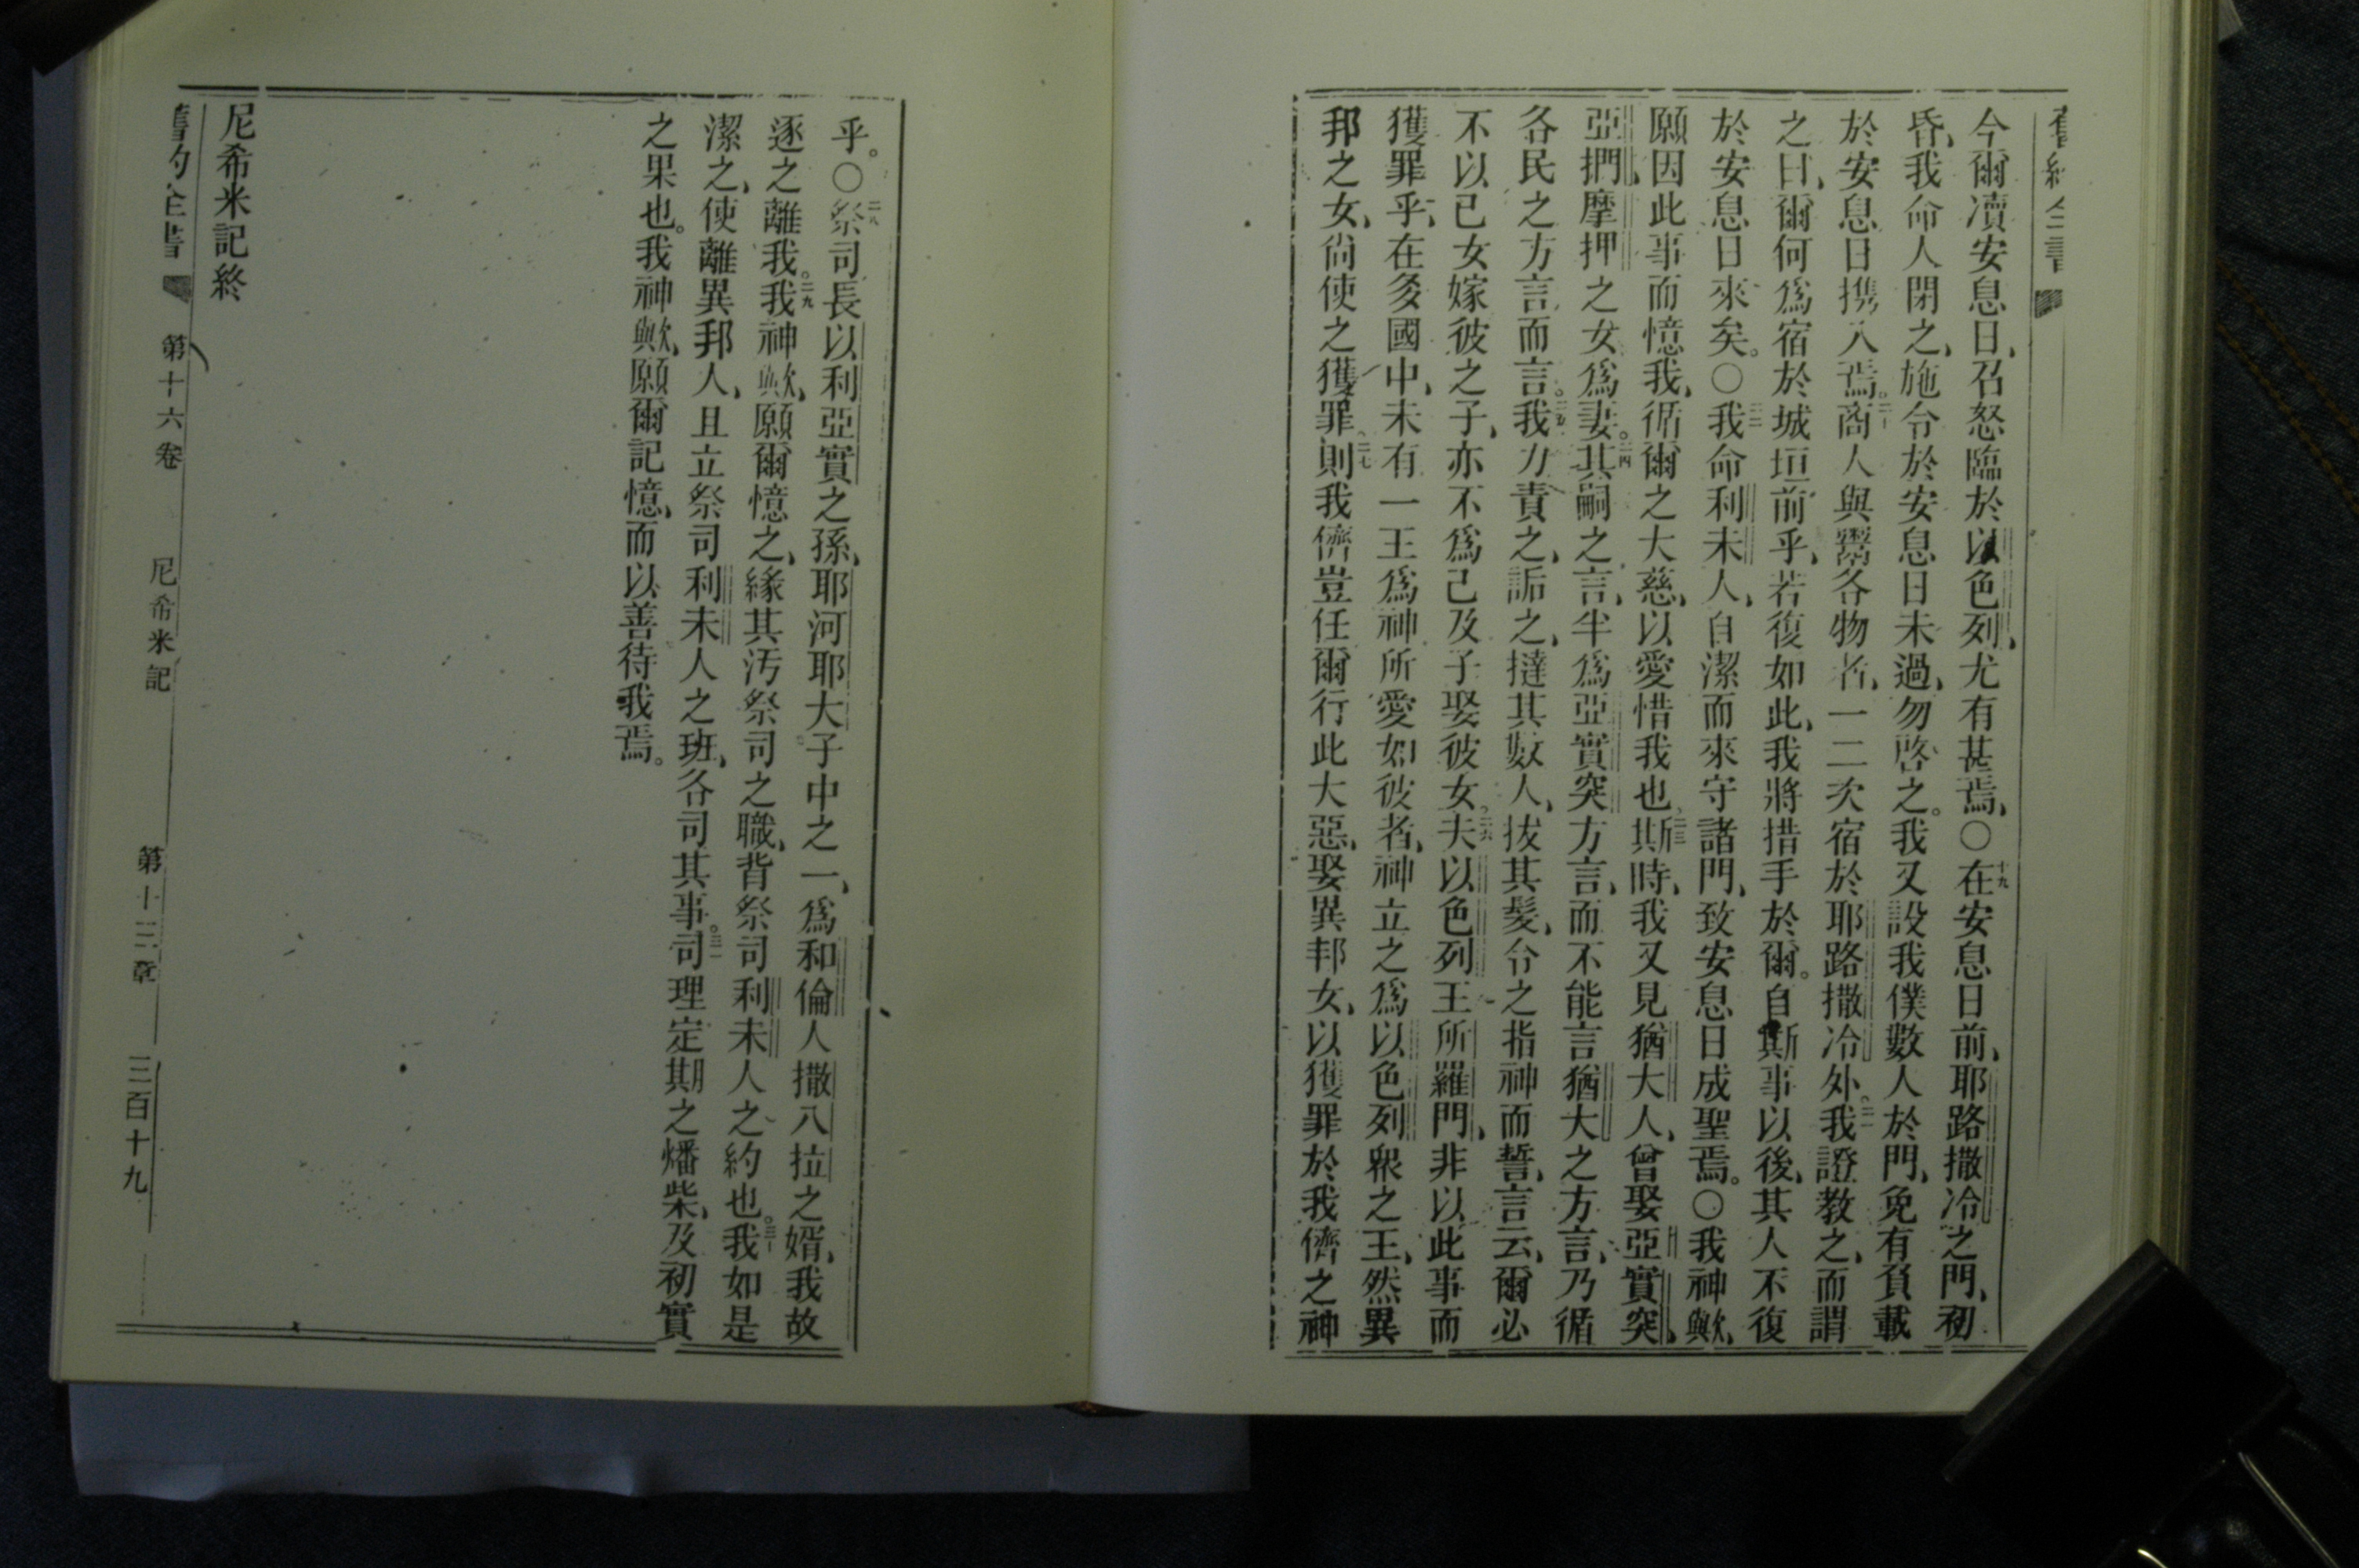 今爾瀆安息日、召怒臨於以色列、尤有甚焉、○十九在安息日前、耶路撒冷之門、初
昏、我命人閉之、施令於安息日未過、勿啓之。我又設我僕數人於門、免有負載
於安息日携入焉。二十商人與鬻各物者、一二次宿於耶路撒冷外。二一我證教之、而謂
之曰、爾何爲宿於城垣前乎、若復如此、我將措手於爾。自斯事以後、其人不復
於安息日來矣。○二二我命利未人、自潔而來守諸門、致安息日成聖焉。○我神歟、
願因此事而憶我、循爾之大慈、以愛惜我也、二三斯時、我又見猶大人、曾娶亞實突、
亞捫、摩押之女爲妻。二四其嗣之言、半爲亞實突方言、而不能言猶大之方言、乃循
各民之方言而言。二五我力責之、詬之、撻其數人、拔其髮、令之指神而誓、言云、爾必
不以己女嫁彼之子、亦不爲己及子娶彼女。二六夫以色列王所羅門、非以此事而
獲罪乎、在多國中、未有一王爲神所愛如彼者、神立之爲以色列衆之王、然異
邦之女、尚使之獲罪、二七則我儕豈任爾行此大惡、娶異邦女、以獲罪於我儕之神
乎。○二八祭司長以利亞實之孫、耶河耶大子中之一、爲和倫人撒八拉之婿、我故
逐之離我。二九我神歟、願爾憶之、緣其汚祭司之職、背祭司利未人之約也。三十我如是
潔之、使離異邦人、且立祭司利未人之班、各司其事。三一司理定期之燔柴、及初實
之果也。我神歟、願爾記憶、而以善待我焉。
尼希米記終
舊約全書 第十六卷 尼希米記 第十三章 三百十九